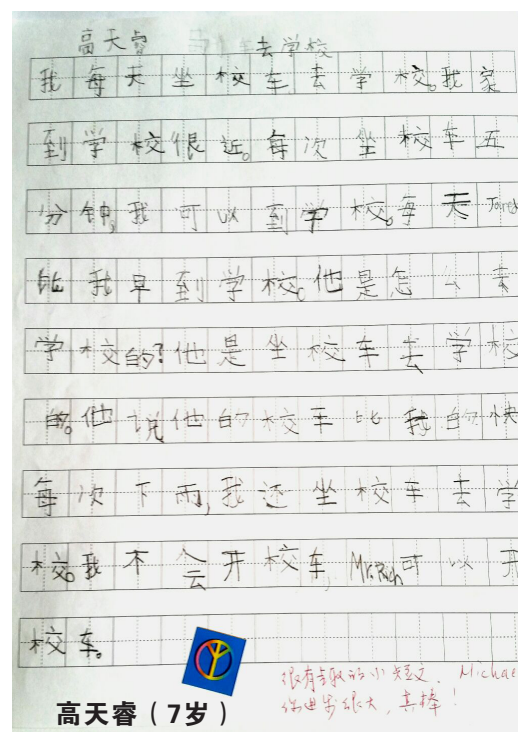 高天睿 去学校
我每天坐校车去学校。我家
到学校很近。每次坐校车五
分钟,我可以到学校。每天Jared
比我早到学校。他是怎么去
学校的?他是坐校车去学校
的。他说他的校车比我的快
每次下雨,我还坐校车去学
校。我不会开校车,Mr.Rich可以开
校车。
很有趣的小短文. Michae
你进步很大,真棒!
高天睿(7岁)